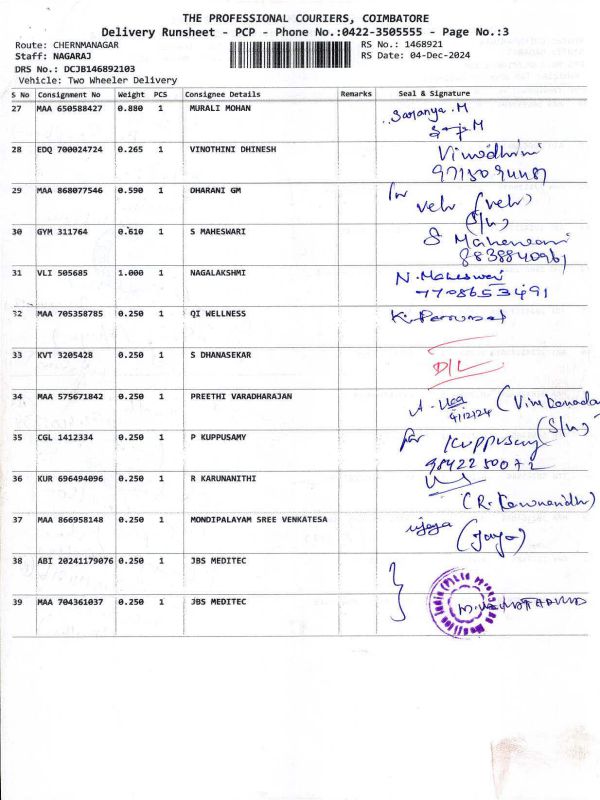 THE PROFESSIONAL COURIERS, COIMBATORE
Delivery Runsheet - PCP - Phone No.:0422-3505555 - Page No.:3
Route: CHERNMANAGAR RS No.: 1468921
Staff: NAGARAJ RS Date: 04-Dec-2024
DRS No.: DCJB146892103
Vehicle: Two Wheeler Delivery
S No Consignment No Weight PCS Consignee Details Remarks Seal & Signature
27 MAA 650588427 0.880 1 MURALI MOHAN Saranya.M
28 EDQ 700024724 0.265 1 VINOTHINI DHINESH Vinodhini
29 MAA 868077546 0.590 1 DHARANI GM for velu (velu)
(S/n)
30 GYM 311764 0.610 1 S MAHESWARI S Maheswari
8838840961
31 VLI 505685 1.000 1 NAGALAKSHMI N.Maheswari
7708653491
32 MAA 705358785 0.250 1 QI WELLNESS
33 KVT 3205428 0.250 1 S DHANASEKAR D/L
34 MAA 575671842 0.250 1 PREETHI VARADHARAJAN
4/12/24 (S/n)
35 CGL 1412334 0.250 1 P KUPPUSAMY for Kuppusamy
36 KUR 696494096 0.250 1 R KARUNANITHI
37 MAA 866958148 0.250 1 MONDIPALAYAM SREE VENKATESA
38 ABI 20241179076 0.250 1 JBS MEDITEC
39 MAA 704361037 0.250 1 JBS MEDITEC